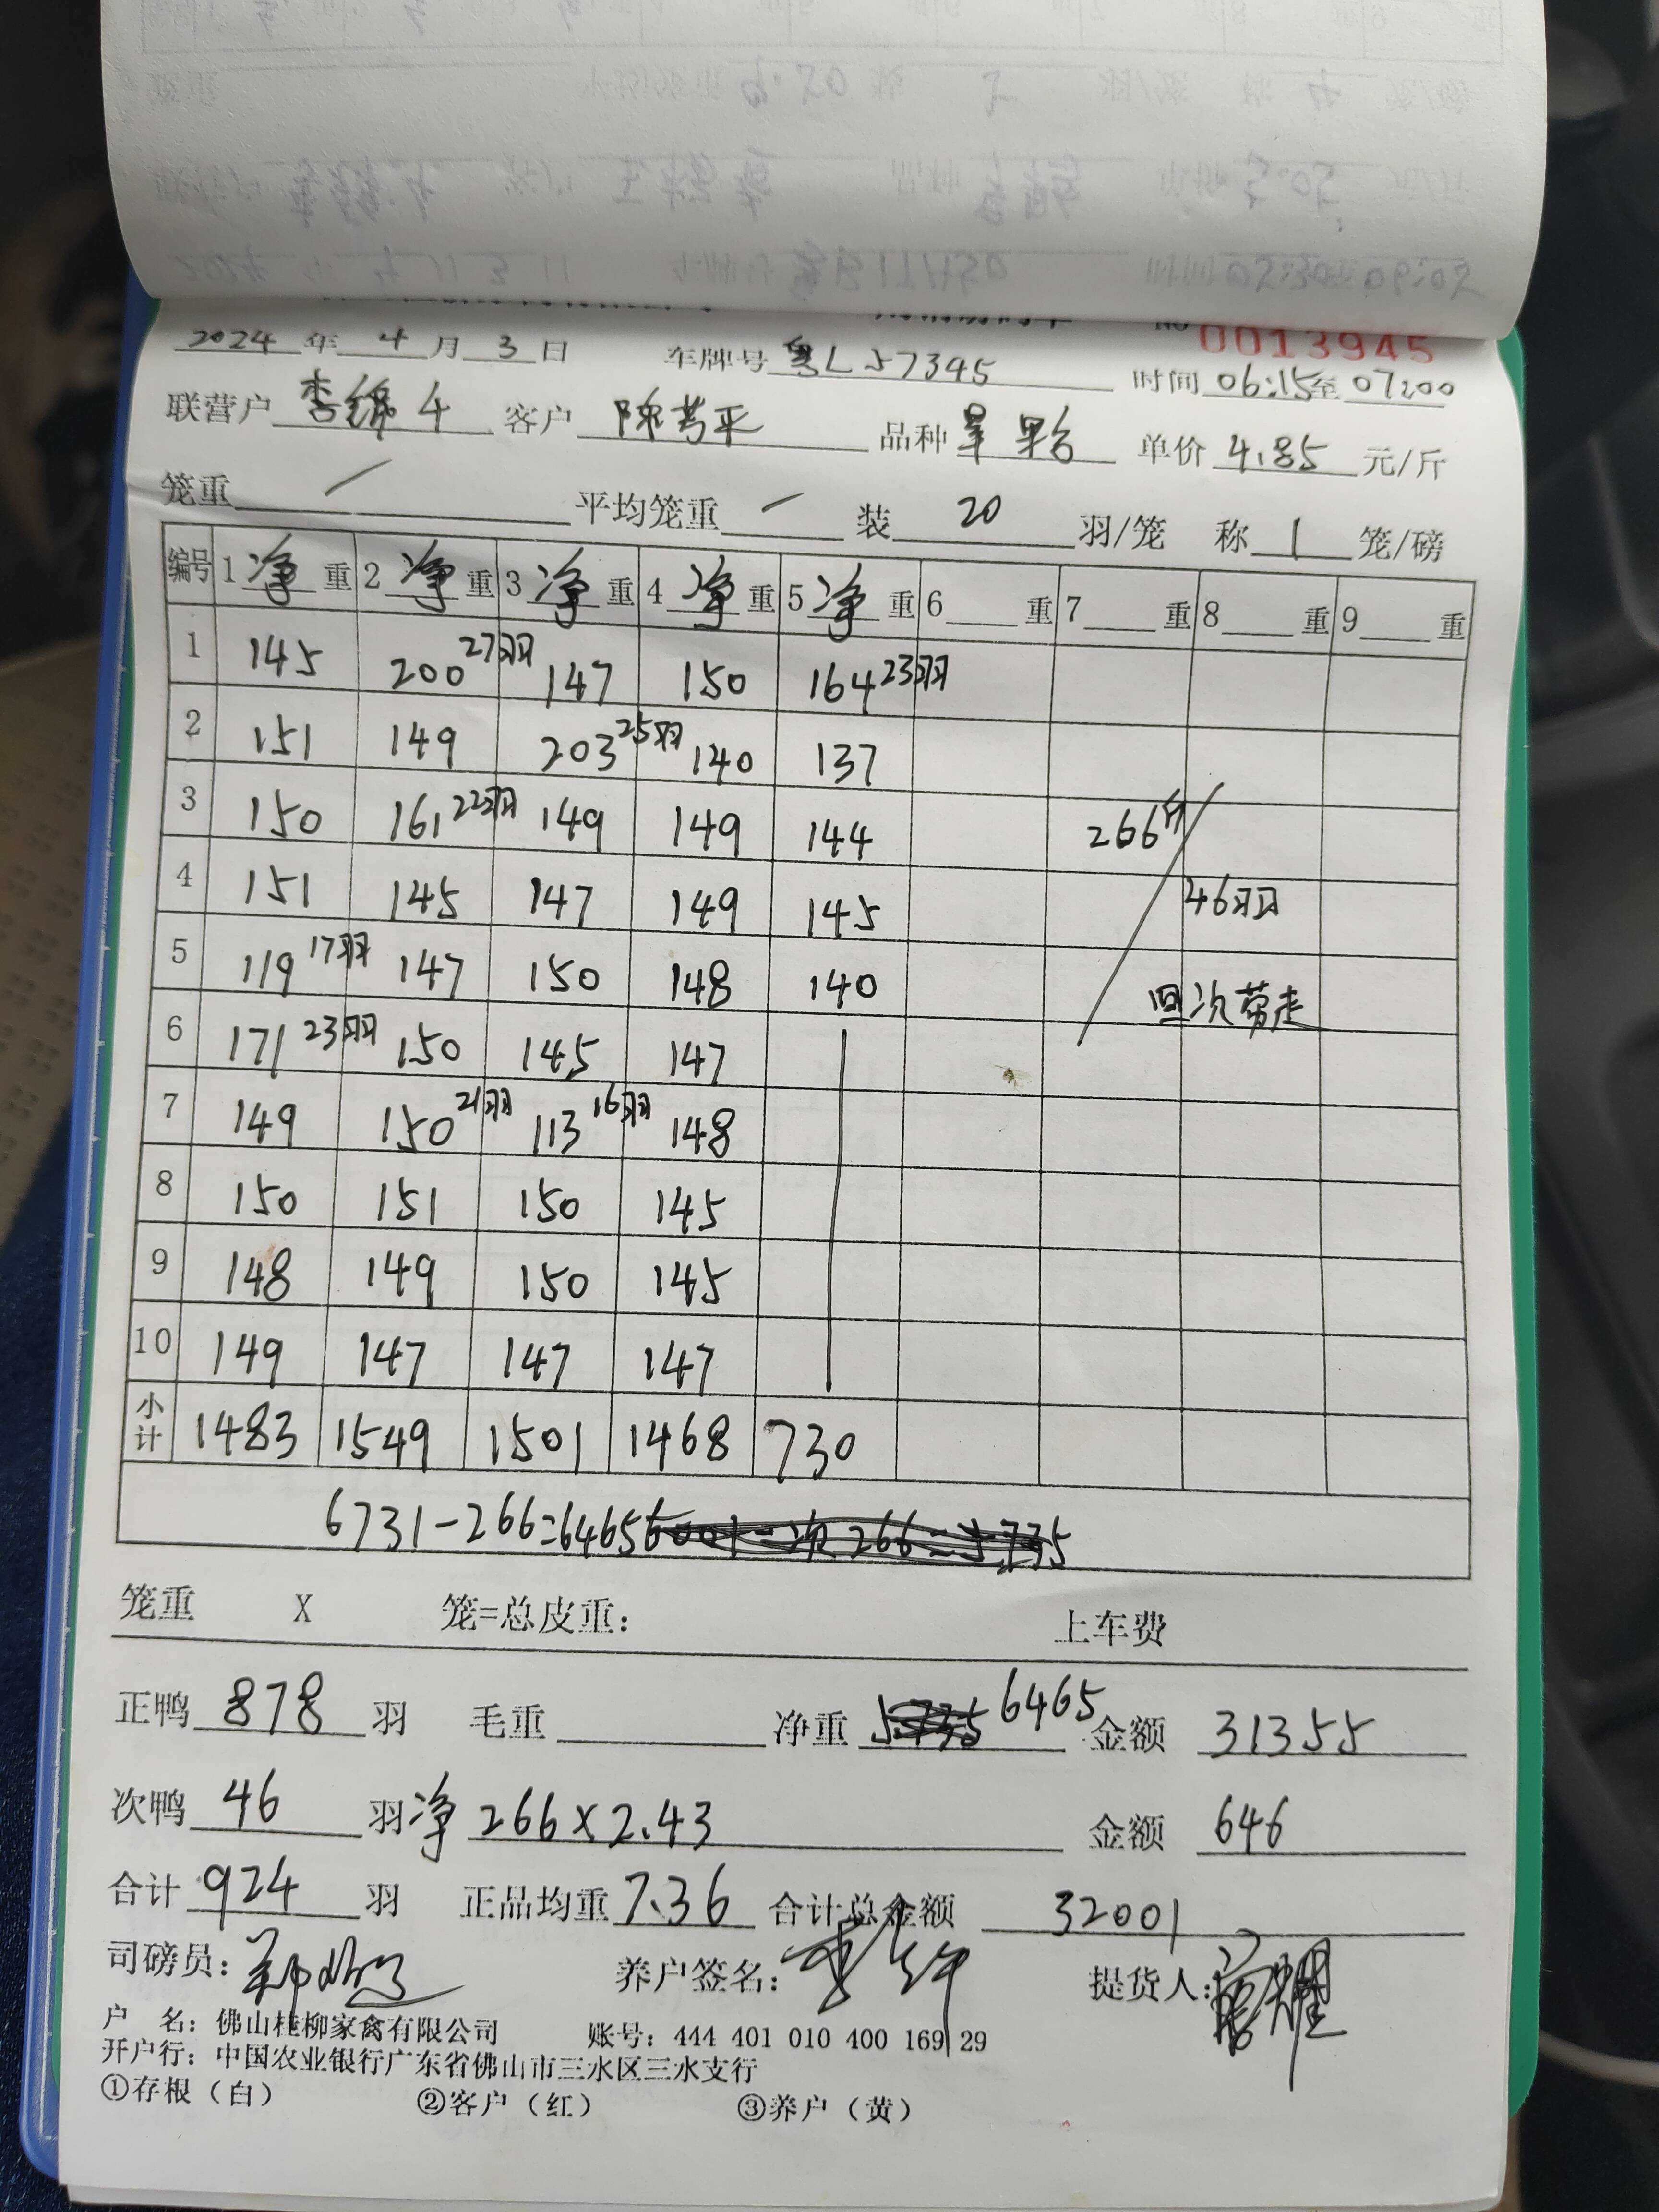 No 0013945
2024 年 4 月 3 日 车牌号 粤L57345 时间 06:15至07:00
联营户 李锦牛 客户 陈芳平 品种 单价 4.85 元/斤
笼重 / 平均笼重 / 装 20 羽/笼 称 1 笼/磅
编号 1 净 重 2 净 重 3 净 重 4 净 重 5 净 重 6 重 7 重 8 重 9 重
1 145 200 27羽 147 150 164 23羽
2 151 149 203 25羽 140 137
3 150 161 22羽 149 149 144 266斤/
4 151 145 147 149 145 46羽
5 119 17羽 147 150 148 140 回次带走
6 171 23羽 150 145 147
7 149 150 21羽 113 16羽 148
8 150 151 150 145
9 148 149 150 145
10 149 147 147 147
小计 1483 1549 1501 1468 730
6731-266=6465
笼重 X 笼=总皮重: 上车费
正鸭 878 羽 毛重 净重 6465 金额 31355
次鸭 46 羽 净 266×2.43 金额 646
合计 924 羽 正品均重 7.36 合计总金额 32001
司磅员: 养户签名: 提货人:
户 名: 佛山桂柳家禽有限公司 账号: 444 401 010 400 169 29
开户行: 中国农业银行广东省佛山市三水区三水支行
①存根（白） ②客户（红） ③养户（黄）